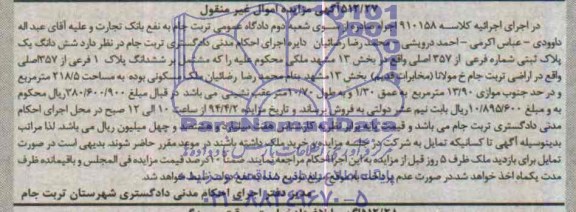 ۵۱۳/۲۷ آگهی مزایده اموال غیر منقول
در اجرای اجرائیه کلاسه ۹۱۰۱۵۸ اجرا، صادره از سوی شعبه دوم دادگاه عمومی تربت جام به نفع بانک تجارت و علیه آقای عبد اله
داوودی - عباس اکرمی - احمد درویشی - محمد رضا رضائیان دایره اجرای احکام مدنی دادگستری تربت جام در نظر دارد شش دانگ یک
پلاک ثبتی شماره فرعی از ۳۵۷ اصلی واقع در بخش ۱۳ مشهد ملکی محکوم علیه را که مشتمل بر ششدانگ پلاک ۱ فرعی از ۳۵۷ اصلی
واقع در اراضی تربت جام خ مولانا (مخابرات قدیم) بخش ۱۳ مشهد بنام محمد رضا رضائیان ملک مسکونی بوده به مساحت ۲۱۸/۵ مترمربع
و در حد جنوب موازی ۱۳/۹۰ مترمربع به عمق ۱/۳۰ و به طول ۱۰/۷۰ متر عقب نشینی می باشد در قبال مبلغ ۳۸۰/۶۰۰/۹۰۰ ریال محکوم
به و مبلغ ۱۰/۸۹۵/۶۰۰ ریال بابت نیم عشر دولتی به فروش برساند و تاریخ مزایده ۹۴/۴/۲ از ساعت ۱۰ الی ۱۲ صبح در محل اجرای احکام
مدنی دادگستری تربت جام می باشد و قیمت پایه برابر نظریه کارشناس هفت میلیارد و هفتصد و چهل میلیون ریال می باشد. لذا مراتب
بدینوسیله آگهی تا کسانیکه تمایل به شرکت در جلسه مزایده و خرید ملک داشته باشند در موعد مقرر حاضر شوند. بدیهی است در صورت
تمایل برای بازدید ملک ظرف ۵ روز قبل از مزایده به این اجرا احکام مراجعه نمایند. ضمنا ۱۰ درصد قیمت مزایده فی المجلس و باقیمانده ظرف
مدت یکماه اخذ خواهد شد در صورت عدم پرداخت
مدیر دفتر اجرای احکام مدنی دادگستری شهرستان تربت جام
ParsNamadData
۰۲۱-۸۸۳۴۹۶۷۰-۵